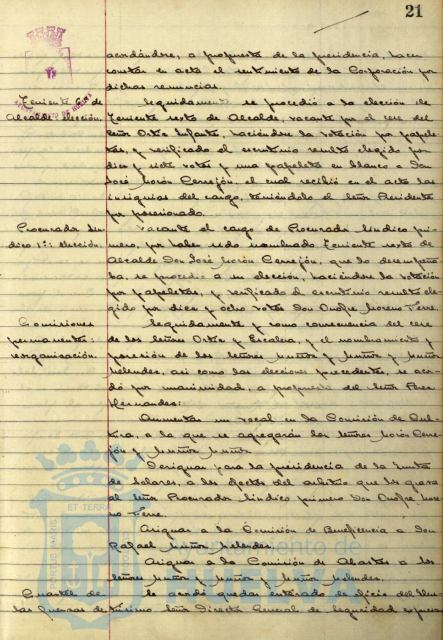 21
acordándose, a propuesta de la presidencia, hacer
constar en acta el sentimiento de la Corporación por
dichas renuncias.
Teniente 6º de
Alcalde elección.
Seguidamente se procedió a la elección de
Teniente sexto de Alcalde, vacante por el cese del
señor Ortiz Infante, haciéndose la votación por papele-
tas, y verificado el escrutinio resultó elegido por
diez y siete votos y una papeleta en blanco a Don
José Morón Cerrejón, el cual recibió en el acto las
insignias del cargo, teniéndolo el señor Presidente
por posesionado.
Procurador Sín-
dico 1º: elección.
Vacante el cargo de Procurador Síndico pri-
mero, por haber sido nombrado Teniente sexto de
Alcalde Don José Morón Cerrejón, que lo desempeña-
ba, se procedió a su elección, haciéndose la votación
por papeletas, y verificado el escrutinio resultó ele-
gido por diez y ocho votos Don Onofre Moreno Ferre.
Comisiones
permanentes:
reorganización.
Seguidamente y como consecuencia del cese
de los señores Ortiz y Escalera, y el nombramiento y
posesión de los señores Muñoz y Muñoz y Muñoz
Melendes, así como las elecciones precedentes, se acor-
dó por unanimidad, a propuesta del señor Pérez
Hernandes:
Aumentar un vocal en la Comisión de Cul-
tura, a la que se agregarán los señores Morón Cerre-
jón y Muñoz Muñoz.
Designar para la presidencia de la Junta
de Solares, a los efectos del arbitrio que los grava
al señor Procurador Síndico primero Don Onofre Mo-
reno Ferre.
Asignar a la Comisión de Beneficencia a Don
Rafael Muñoz Melendes.
Asignar a la Comisión de Abastos a los
señores Muñoz y Muñoz y Muñoz Melendes.
Cuartel de
las fuerzas de
Se acordó quedar enterado de oficio del Ilus-
trísimo señor Director General de Seguridad expresa
PORTUS MARIS
ET TERRAE
Ayuntamiento de